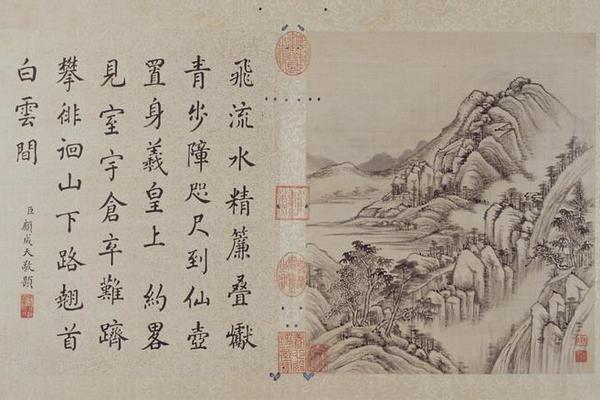 飛流水精簾疊巘
青步障咫尺到仙壺
置身羲皇上 約畧
見室宇倉卒難躋
攀徘徊山下路翹首
白雲間
臣顧成天敬題